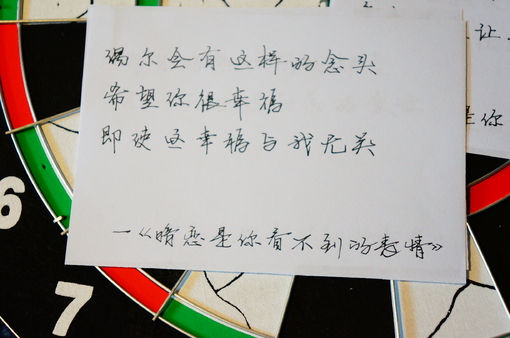 偶尔会有这样的念头
希望你很幸福
即使这幸福与我无关
—《暗恋是你看不到的表情》
让
是你
6
7